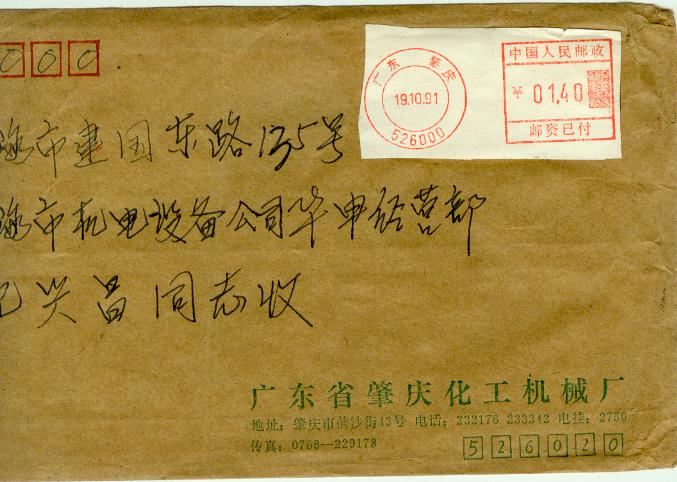 000
广东 肇庆
19.10.91
526000
中国人民邮政
01.40
邮资已付
海市建国东路135号
海市机电设备公司华申经营部
兴昌同志收
广东省肇庆化工机械厂
地址：肇庆市前沙街43号 电话：232176 233342 电挂：2750
传真：0758—229178
526020